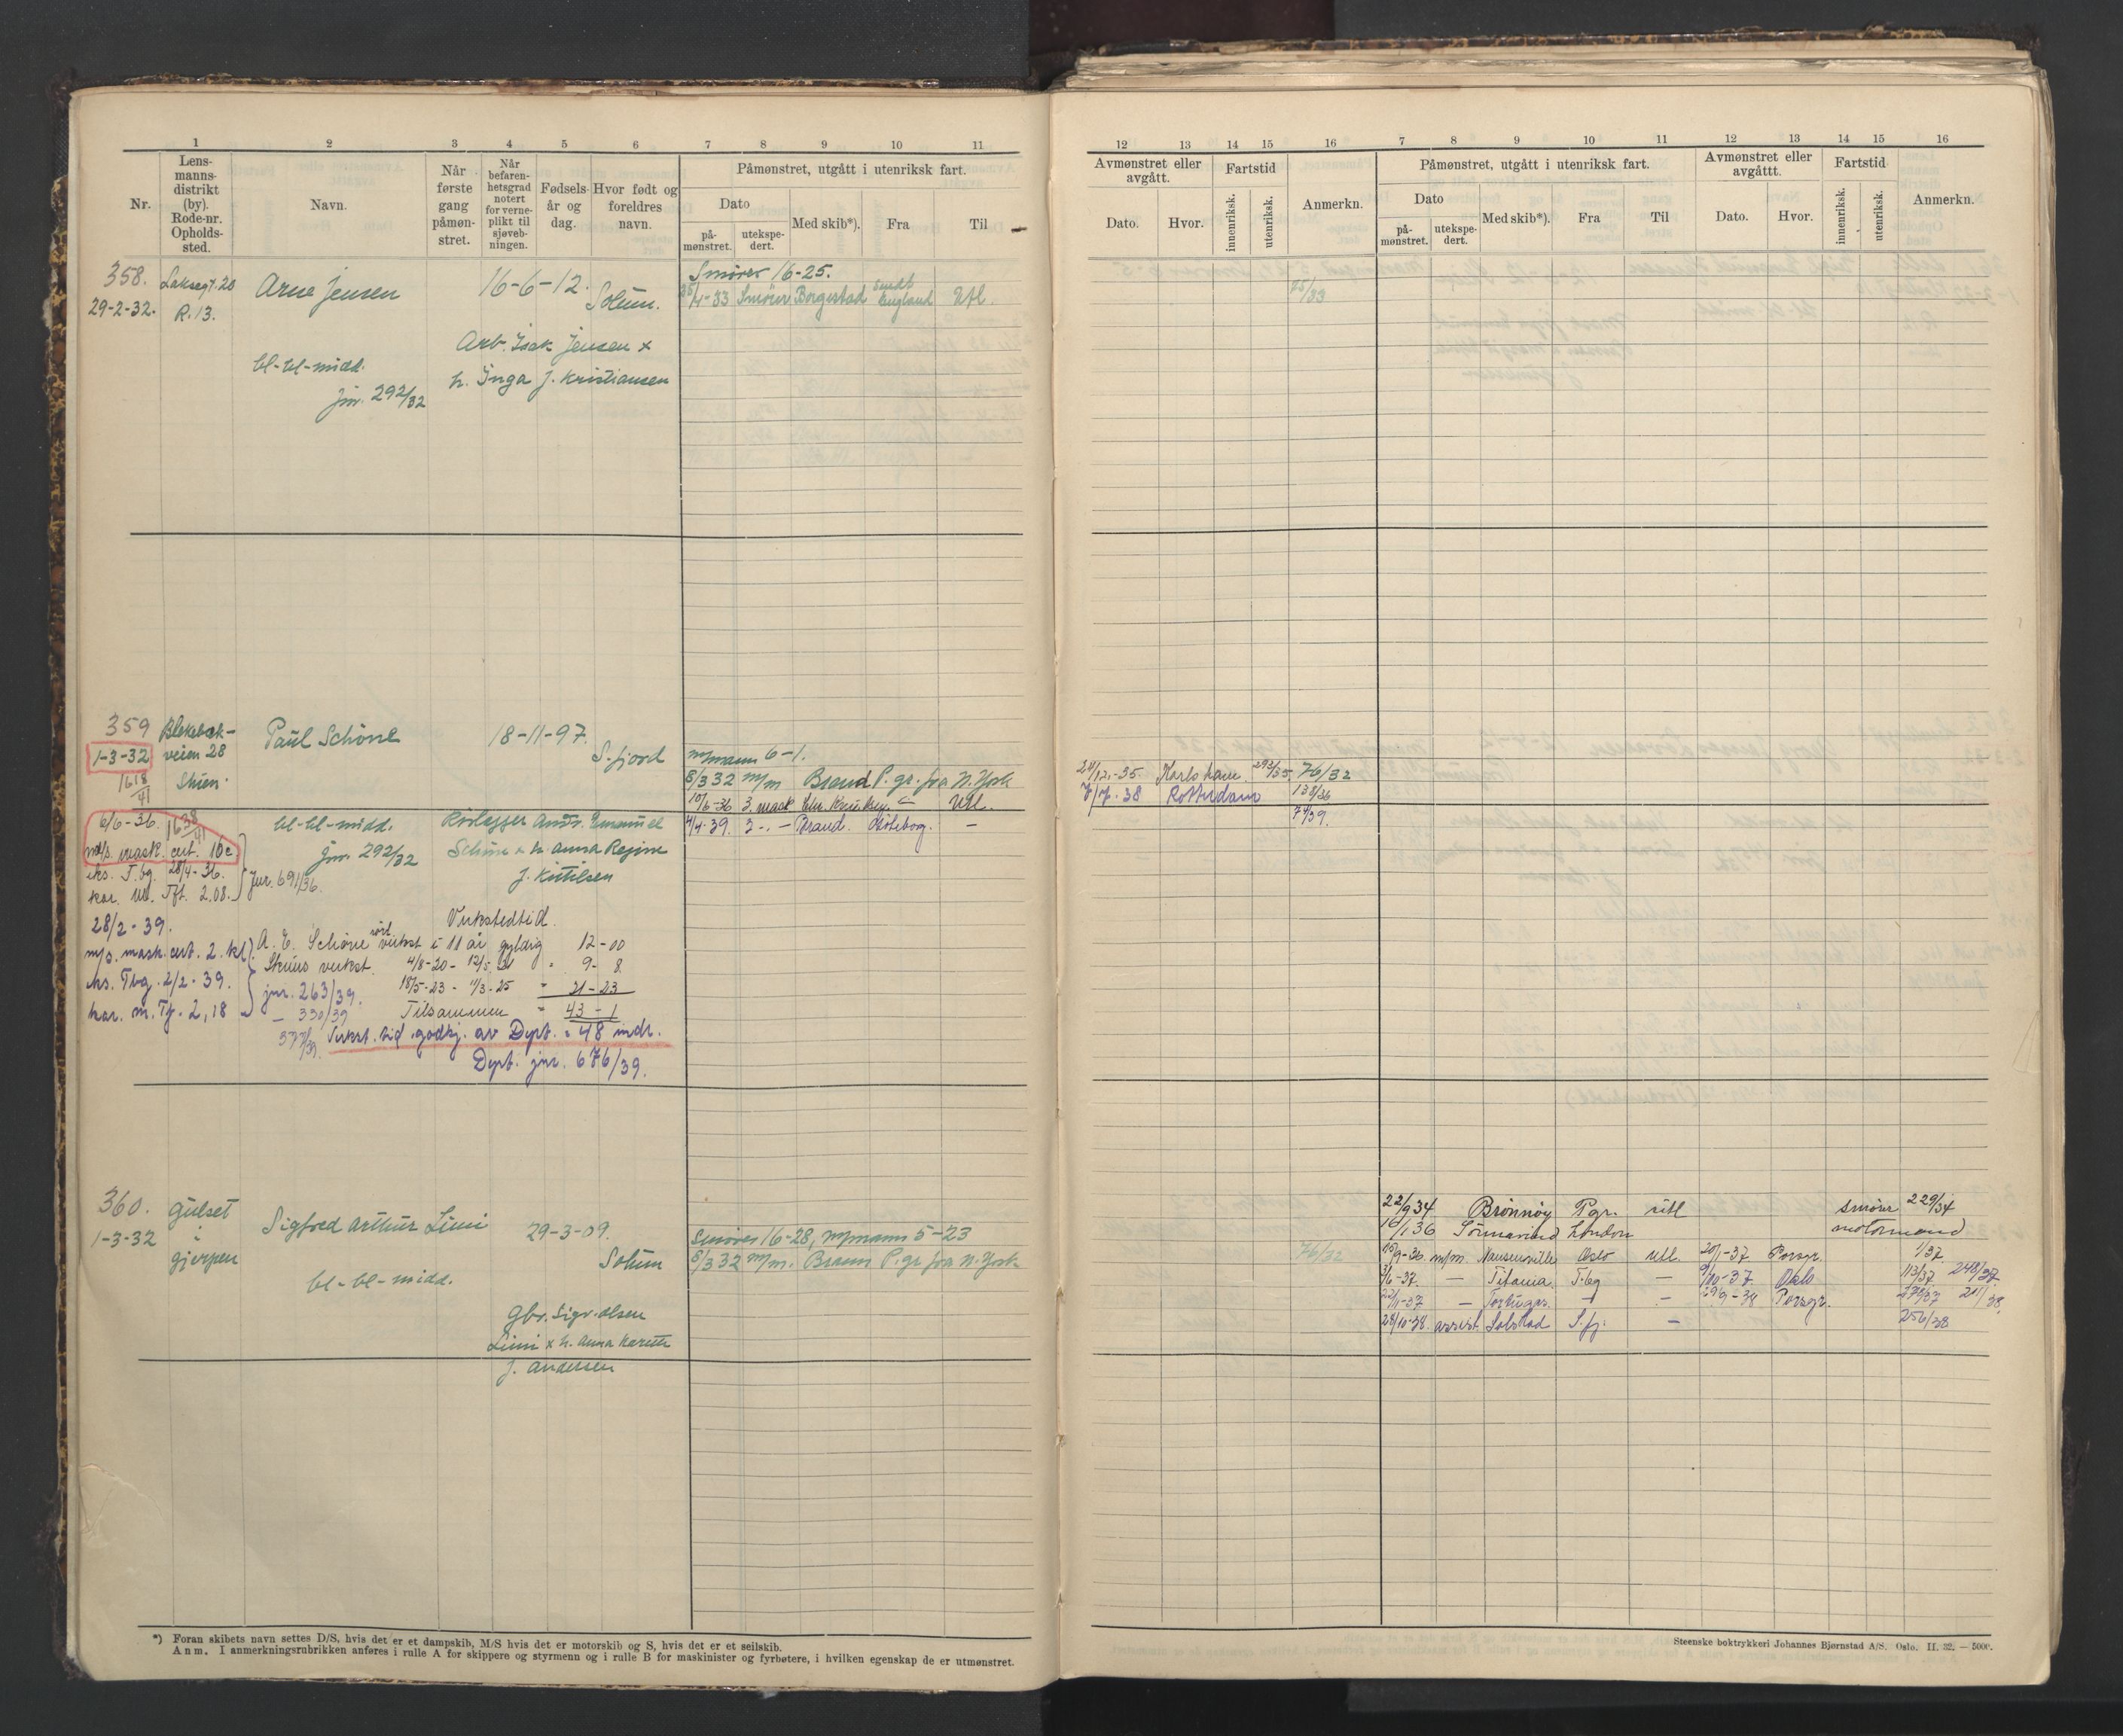 1 2 3 4 5 6 7 8 9 10 11
Nr.
Lens-
manns-
distrikt
(by).
Rode-nr.
Opholds-
sted.
Navn.
Når
første
gang
påmøn-
stret.
Når
befaren-
hetsgrad
notert
for verne-
plikt til
sjøveb-
ningen.
Fødsels-
år og
dag.
Hvor født og
foreldres
navn.
Påmønstret, utgått i utenriksk fart.
Dato
på-
mønstret.
utekspe-
dert.
Med skib*).
Fra
Til
358. R. 13.
29-2-32.
Arne Jensen
16-6-12.
Solum.
Smører 16-25.
25/4-33 Smører Borgestad England Utl.
Arb. Isak Jensen x
h. Inga f. Kristiansen
bl-bl-midd.
jnr. 292/32
359
1-3-32 veien 28
1618/41 Skien.
Paul Schöne
18-11-97.
S.fjord
m/mann 6-1.
8/3 32 m/m Brand P.gr. fra N. York
10/6-36 3. mask Utl.
4/4-39. 2 -. - Brand. Göteborg. -
6/6-36. 1638/41
m/s. mask. cert. 10c
eks. T.bg. 28/4-36.
kar. M. Tft. 2.08.
jnr. 691/36.
bl-bl-midd.
jnr. 292/32
Andr. Emanuel
Schöne x h. Anna Regine
f. Kittilsen
28/2-39.
m/s. mask. cert. 2. kl.
eks. Tbg. 2/2-39.
kar. m. Tf. 2,18
Verkstedtid.
A. E. Schöne verkst i 11 år gyldig 12-00
Skiens verkst. 4/8-20 - 12/5 21 " 9-8
jnr. 263/39. 18/5-23 - 11/3-25 " 21-23
- 330/39 Tilsammen " 43-1
Verkst. tid godkj. av Dept. = 48 mdr.
Dept. jnr. 676/39.
360. Gulset
1-3-32 i
Gjerpen
Sigfred Arthur Limi
29-3-09.
Solum
Smører 16-28, m/mann 5-23
8/3 32 m/m. Brand P.gr fra N. York
bl-bl-midd.
Gbr. Sigv. Olsen
Limi x h. Anna
f. Andersen
*) Foran skibets navn settes D/S, hvis det er et dampskib, M/S hvis det er motorskib og S, hvis det er et seilskib.
Anm. I anmerkningsrubrikken anføres i rulle A for skippere og styrmenn og i rulle B for maskinister og fyrbøtere, i hvilken egenskap de er utmønstret.
12 13 14 15 16 7 8 9 10 11 12 13 14 15 16
Avmønstret eller
avgått.
Dato.
Hvor.
Fartstid
innenriksk.
utenriksk.
Anmerkn.
Påmønstret, utgått i utenriksk fart.
Dato
på-
mønstret.
utekspe-
dert.
Med skib*).
Fra
Til
Avmønstret eller
avgåttt.
Dato.
Hvor.
Fartstid
innenriksk.
utenriksk.
Anmerkn.
75/33
24/12-35. Karlshamn. 293/35. 76/32
7/7-38 Rotterdam 138/36
74/39.
76/32
22/9 34 Brønnøy P.gr. utl smører 229/34
16/1 36 London motormand
m/m. Nausenville Oslo utl. Porsgr. 1/37.
3/6-37. - Titania. T.bg - 9/10-37 Oslo 113/37. 248/37.
22/11-37 - - - 29/9-38 Porsgr.
28/10-38. assist. Solstad S.fj. - 256/38
Steenske boktrykkeri Johannes Bjørnstad A/S. Oslo. II. 32. — 5000.